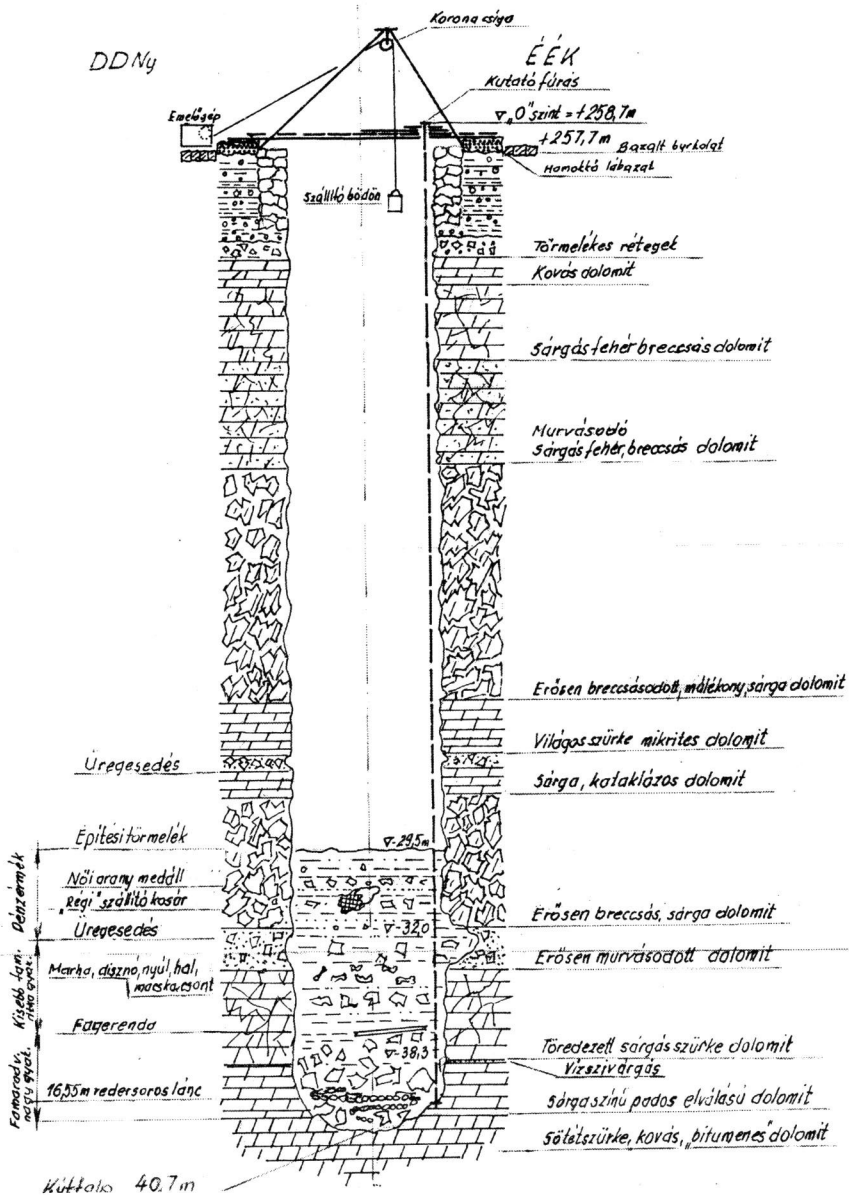 Korona csiga
DDNy
ÉÉK
Kutató fúrás
Emelőgép
▽ „0" szint = +258,7m
+257,7m
Bazalt burkolat
Homokkő lábazat
Szállító bödön
Törmelékes rétegek
Kovás dolomit
Sárgásfehér breccsás dolomit
Murvásodó
Sárgásfehér, breccsás dolomit
Erősen breccsásodott, málékony, sárga dolomit
Világosszürke mikrites dolomit
Üregesedés
Sárga, kataklázos dolomit
Építési törmelék
▽-29,5m
Női arany medáll
„Régi" szállító kosár
Pénzérmék
Erősen breccsás, sárga dolomit
Üregesedés
▽-32,0
Erősen murvásodott dolomit
Marha, disznó, nyúl, hal,
macskacsont
Kisebb fam.
Fagerenda
▽-38,3
Töredezett sárgásszürke dolomit
Vízszivárgás
Famaradv.
nagy gyak.
16,55m redersoros lánc
Sárgaszínű pados elválású dolomit
Sötétszürke, kovás, „bitumenes" dolomit
Kúttalp 40,7m